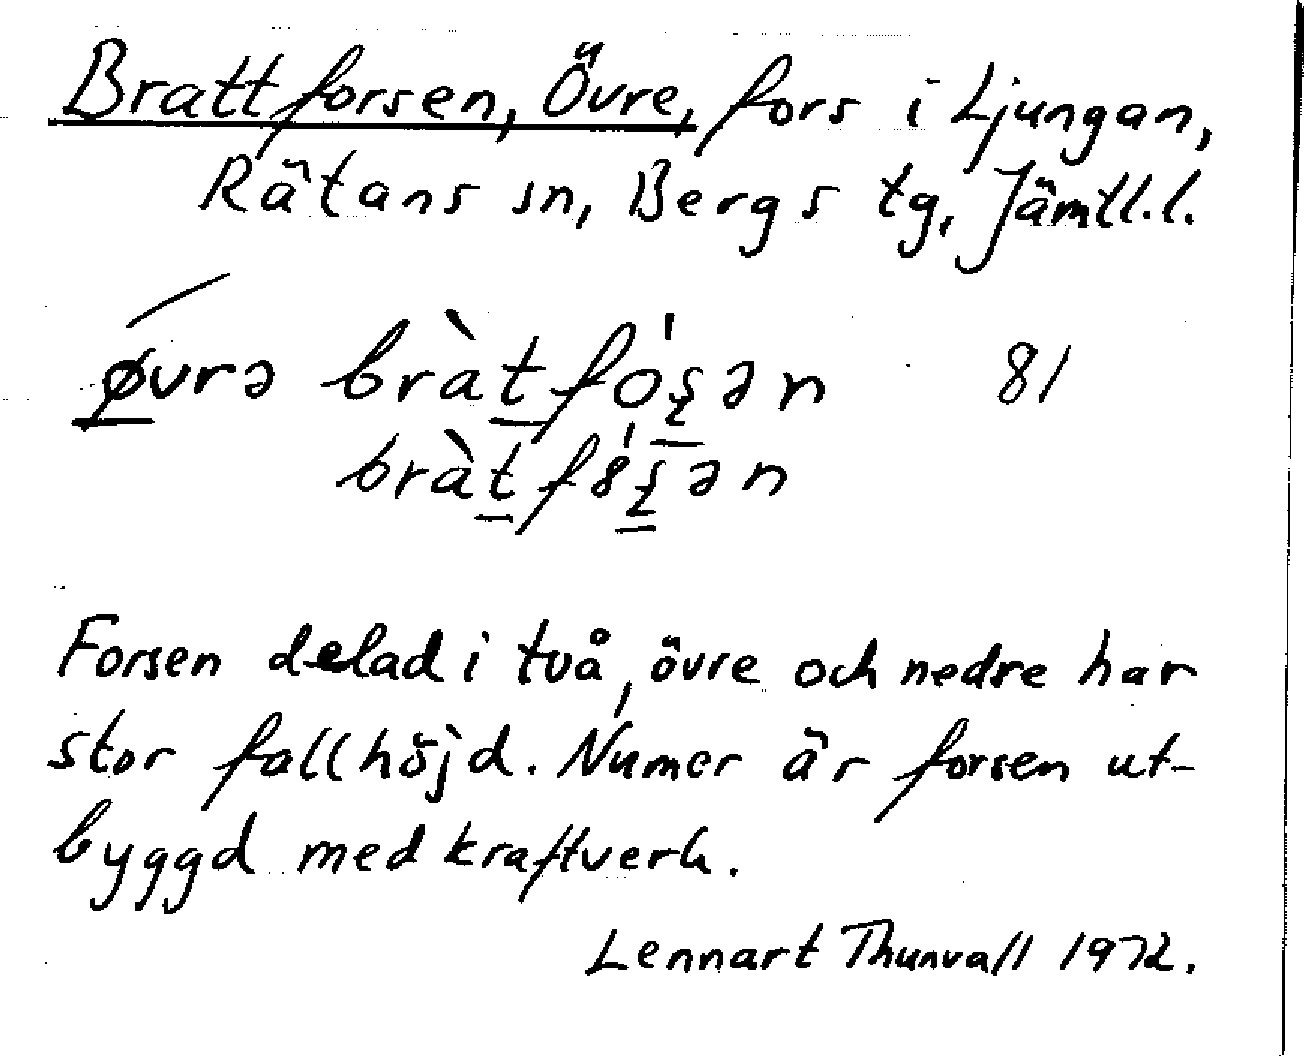 Brattforsen, Övre, fors i Ljungan,
Rätans sn, Bergs tg, Jämtl.l.
øvrə bràtfó̱ʂən 81
bràtf8́ʂən
Forsen delad i två, övre och nedre har
stor fallhöjd. Numer är forsen ut-
byggd med kraftverk.
Lennart Thunvall 1972.